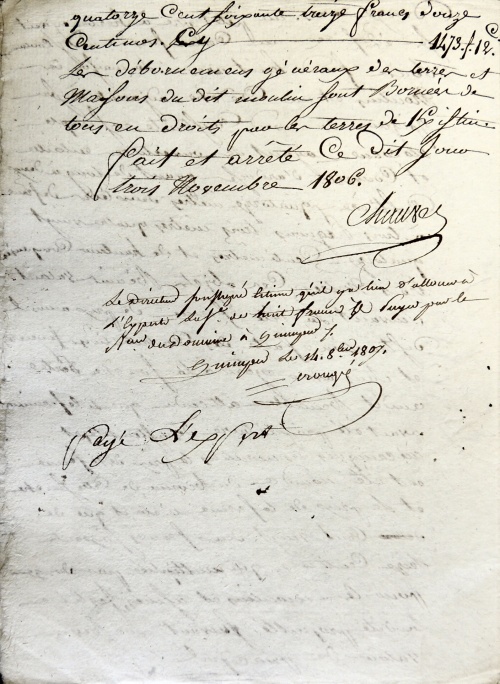 quatorze Cent soixante treize francs douze
Centimes. Cy 1473.f.12.C
Les débornemens généraux des terres et
Maisons du dit moulin sont Bornées de
tous en droits par les terres de
fait et arrêté Ce dit Jour
trois Novembre 1806.
Le Directeur soussigné Estime qu'il y a lieu d'allouer à
L'Expert la S.e de huit francs par le
du Domaine à
le 14. 8.bre 1807.
payé L'expert